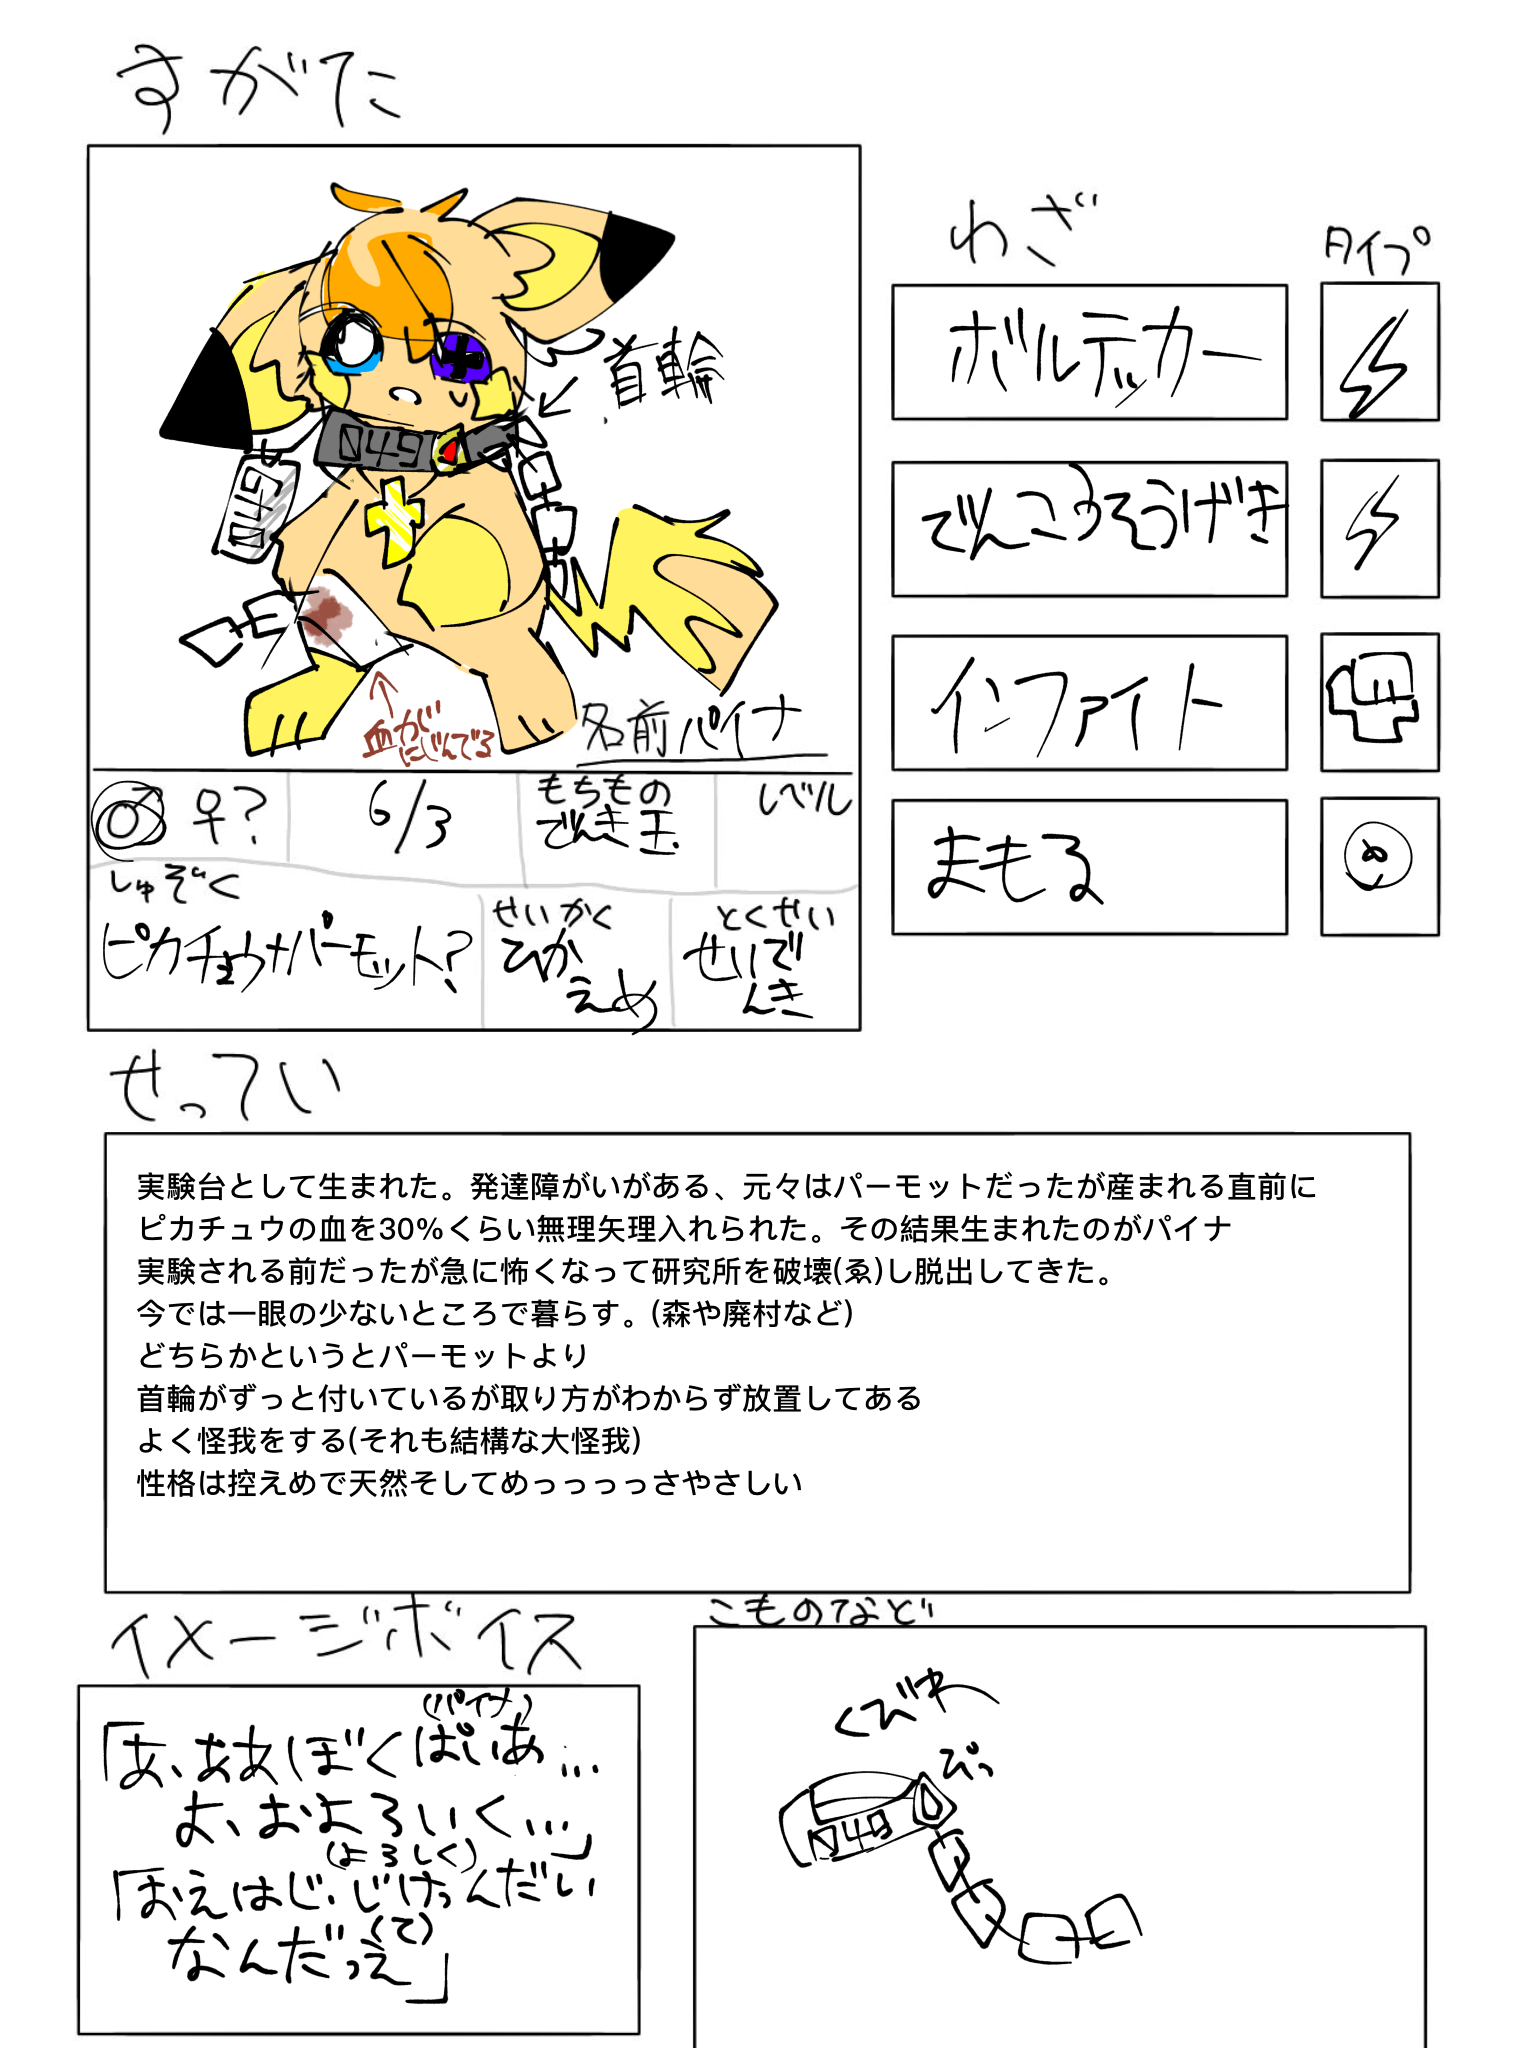 すがた
049
049
首輪
血が
にじんでる
名前 パイナ
♂ ♀?
6/3
もちもの
でんき玉
レベル
しゅぞく
ピカチュウ+パーモット?
せいかく
ひか
えめ
とくせい
せいで
んき
わざ
タイプ
ボルテッカー
でんこうそうげき
インファイト
まもる
せってい
実験台として生まれた。発達障がいがある、元々はパーモットだったが産まれる直前に
ピカチュウの血を30%くらい無理矢理入れられた。その結果生まれたのがパイナ
実験される前だったが急に怖くなって研究所を破壊(ゑ)し脱出してきた。
今では一眼の少ないところで暮らす。(森や廃村など)
どちらかというとパーモットより
首輪がずっと付いているが取り方がわからず放置してある
よく怪我をする(それも結構な大怪我)
性格は控えめで天然そしてめっっっっさやさしい
イメージボイス
(パイナ)
「あ、ああぼくぱいあ...
よ、およろいく...」
(よろしく)
「おえはじ、じけっんだい
(て)
なんだっえ」
こものなど
くびわ
ぴっ
049